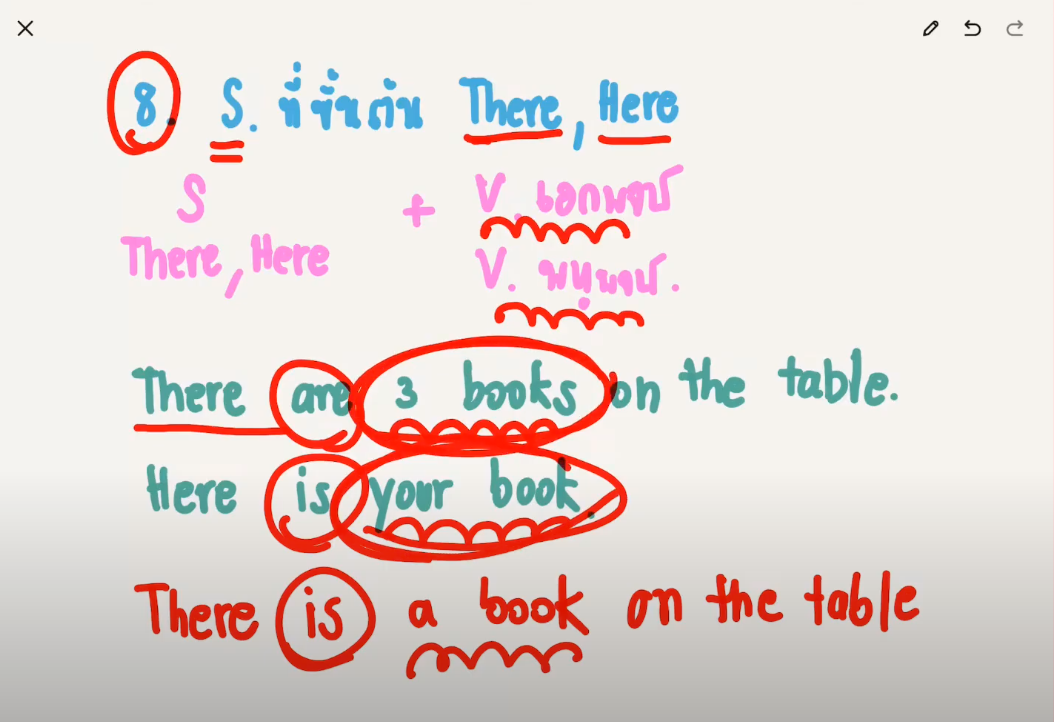 8. S. ที่ขึ้นต้น There, Here
S + V. เอกพจน์
There, Here V. พหูพจน์.
There are 3 books on the table.
Here is your book.
There is a book on the table